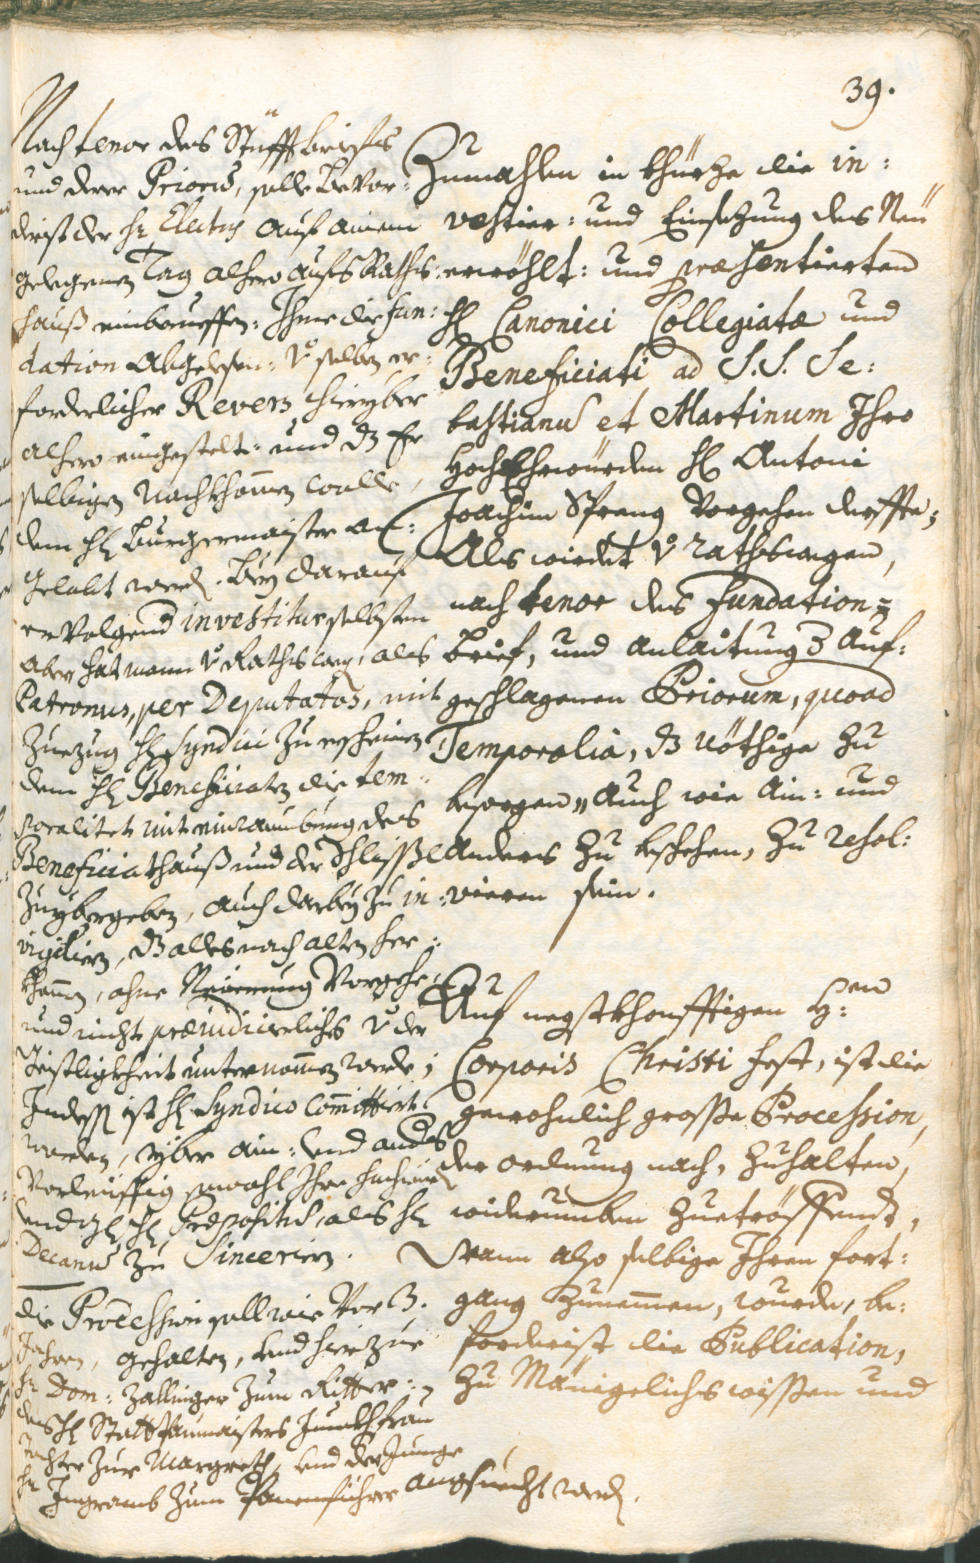 39.
Nach tenor des Stüfftbriefs
und derer Prioris, solle bevor:
derist der H: Electus auf ainem
gelegenen Tag alhero aufs Raths:
hauß einberueffen: Ihme die fun:
dation Abgelesen: v: selben er:
forderlicher Revers hieryber
alhero eingestelt: und dz Er
selbigen nachkhomen wolle,
dem H: Burgermaister an:
gelobt werd. Bey darauf
ervolgend investitur selbsten
aber hat mann v: Raths weg, als
Patronus, per Deputatos, mit
Zuezug H: Syndici zu erscheinen
dem H: Beneficiaten die tem:
poralitet mit einraumbung des
Beneficiathauß und der Schlissl
zu ybergeben, auch darbey zu in:
vigiliern, dz alles nach alten her:
khomen, ohne Neuerung vorgehe,
und nichts præiudicierliches v: der
Geistligkheit unternomen werde;
Indess ist H: Syndico Committirt
worden, yber ain: und anders
vorleiffig sowohl Ihro hochwürd
und H: H: Præpositus, als H:
Decanus zu Sincerirn.
die Procession soll wie vor 3.
Jahren, gehalten, und hierzue
H: Dom: Zallinger zum Ritter:
des H: Statt Paumaisters Junckhfrau
Tochter zur Margreth, und der Junge
H: Ingramb zum Panerführer angesuecht werd.
Zumahlen in khürze die in:
vestier: und Einsezung des Neü
erwöhlt: und præsentierten
H: Canonici Collegiatæ und
Beneficiati ad S.S. Se:
bastianus et Martinum Ihro
HochEhrwürden H: Antoni
Joachim Spreng vorgehen derffte;
Als wirdet v: rathswegen,
nach tenor des fundation=
brief, und anlaitung 3 auf:
geschlagenen Priorum, quoad
Temporalia, dz nöthige zu
besorgen„ Auch wie Ain: und
Anders zu beschehen, zu resol:
vieren sein.
Auf negstkhonfftigen H:en
Corporis Christi fest, ist die
gewohnlich grosse Procession,
der ordnung nach, zuhalten,
widerumben zuetröffendt,
Wann also selbige Ihren fort:
gang zunemen, wurde, be:
forderist die Publication,
zu Mänigelichs wissen und